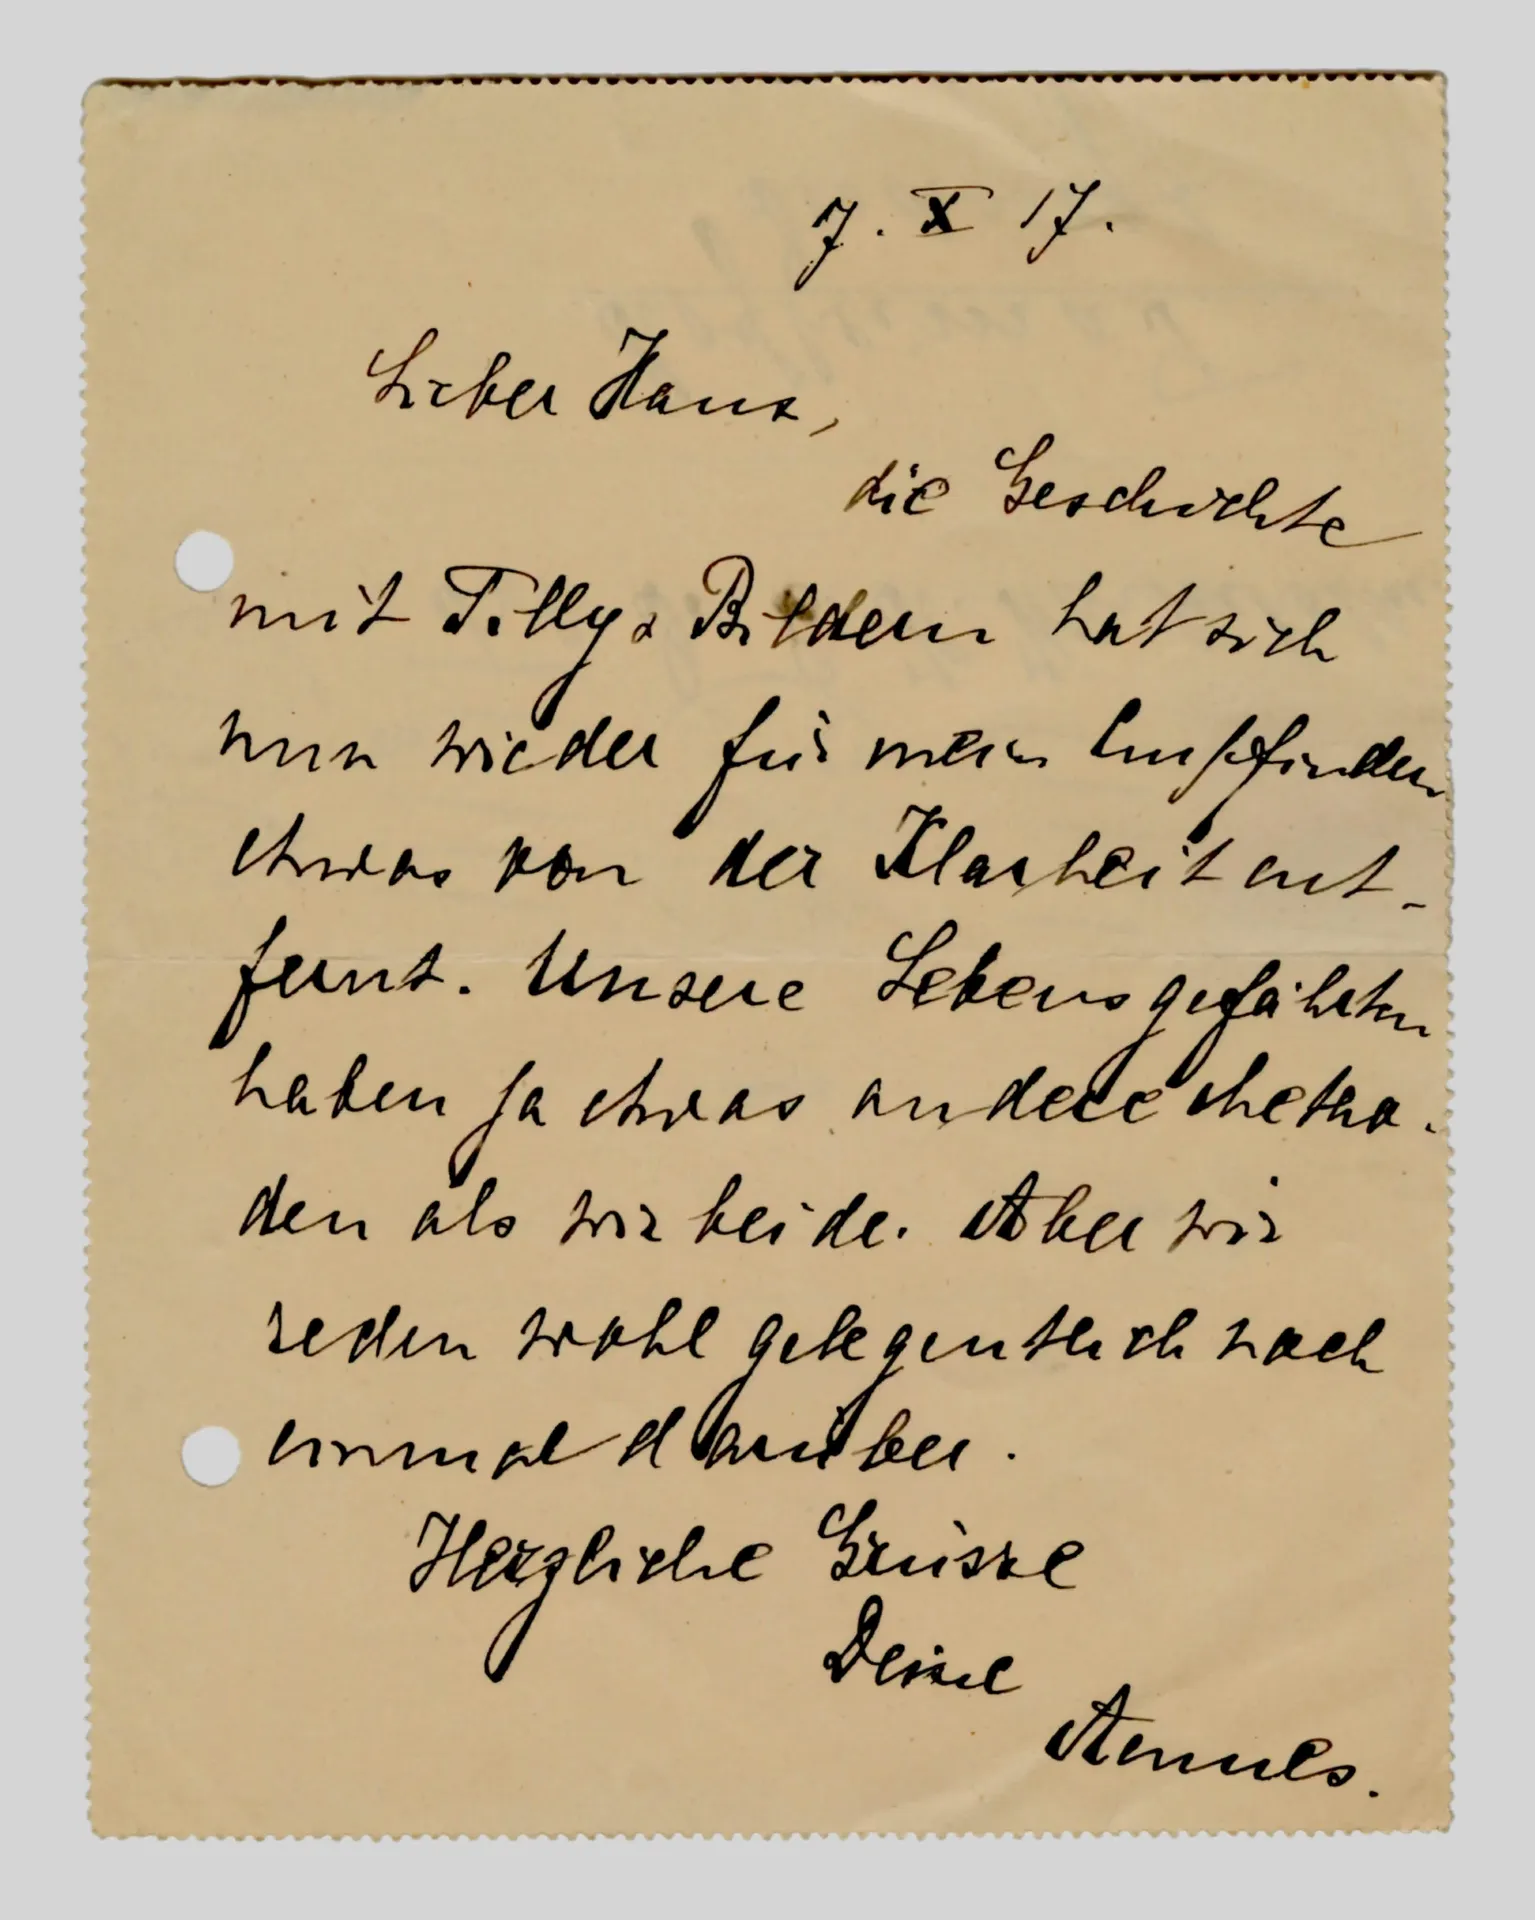 7. X 17.
Lieber Hans,
die Geschichte
mit Tillys Bildern hat sich
nun wieder für mein Empfinden
etwas von der Klarheit ent-
fernt. Unsere Lebensgefährten
haben ja etwas andere Metho-
den als wir beide. Aber wir
reden wohl gelegentlich noch
einmal darüber.
Herzliche Grüsse
Deine